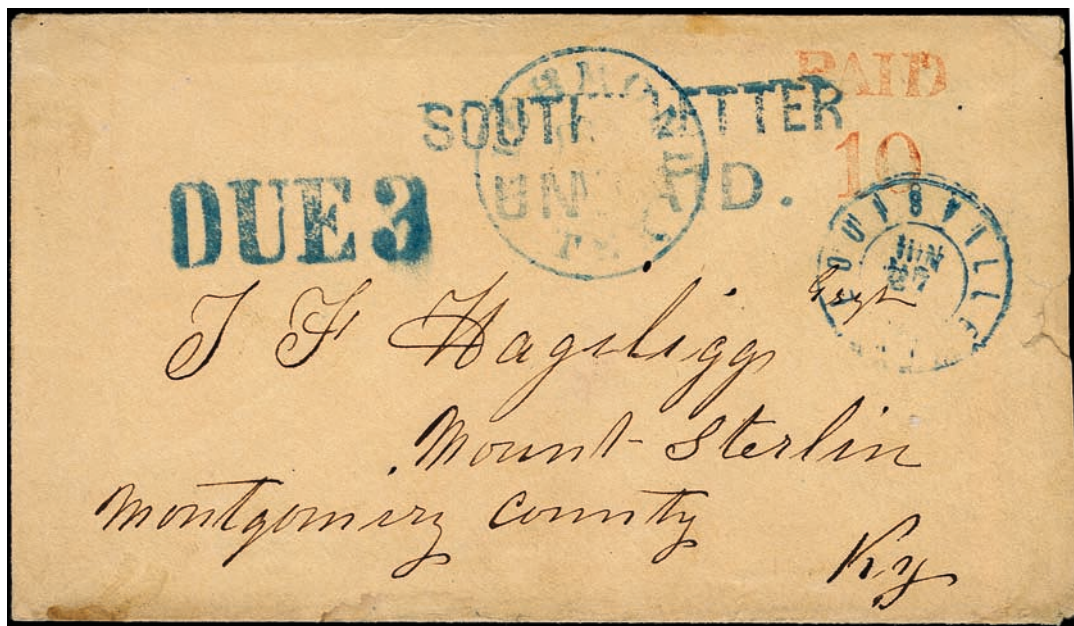 PAID
10
SOUTH LETTER
UNPAID.
DUE 3
LOUISVILLE
JUN
27
J F Hagiliggs Esqr
Mount Sterlin
Montgomery County
Ky